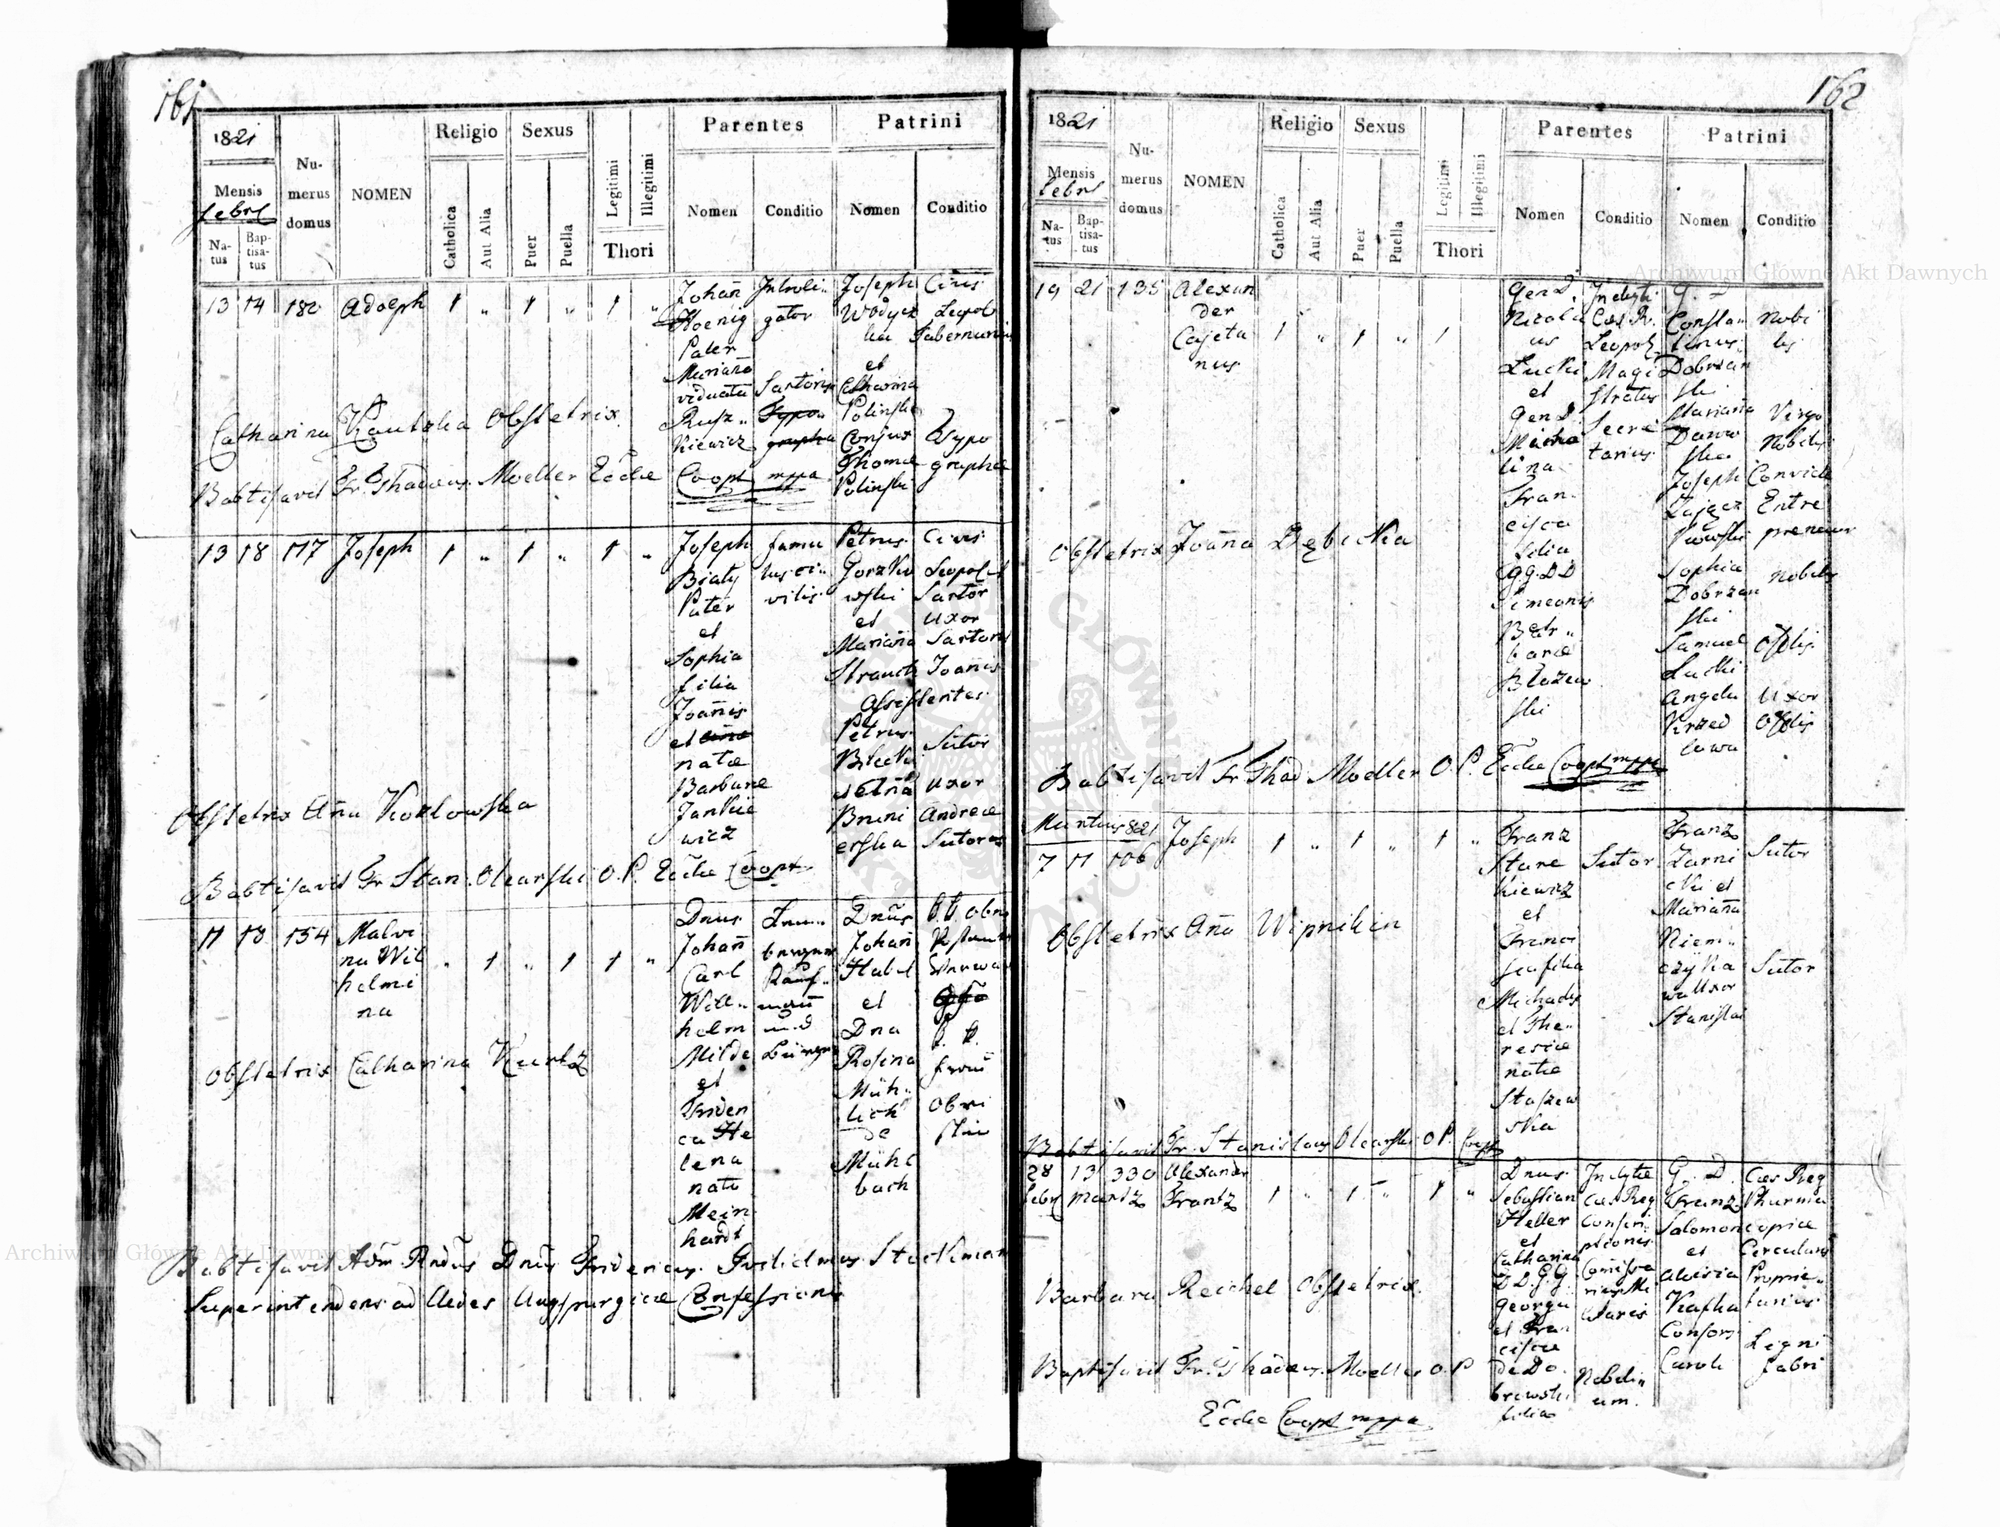 161
1821
Mensis
Febr
Na-
tus
Bap-
tisa-
tus
Nu-
merus
domus
NOMEN
Religio
Catholica
Aut Alia
Sexus
Puer
Puella
Legitimi
Illegitimi
Thori
Parentes
Nomen
Conditio
Patrini
Nomen
Conditio
13 14 180 Adolph 1 " 1 " 1 "
Johañ
Koenig
Pater
Mariaña
viduata
Rusz-
kiewicz
Introli-
gator
Sartoris
Joseph
Wodycz
ka
et
Catharina
Polinska
Conjux
Thomæ
Polinski
Civis
Leopol
Tabernarius
Typo
graphæ
Catharina Kautzka Obstetrix.
Babtisavit Fr. Thadæus Moeller Eccłae Coopt mppa
13 18 117 Joseph 1 " 1 " 1 "
Joseph
Biały
Pater
et
Sophia
filia
Joañis
et
natæ
Barbaræ
Jankie
wicz
famu
lus ci-
vilis
Petrus
Gorzko
wski
et
Mariaña
Strauch
Assistentes
Petrus
Bilecki
Civis
Leopol
Sartor
uxor
Sartoris
Joañis
Sutor
uxor
Andreæ
Sutoris
Obstetrix Aña Kozlowska
Babtisavit Fr Stan. Olearski O.P. Eccłae Coopt
11 18 154 Malvi
na Wil
helmi
na
" 1 " 1 1 "
Dnus
Johañ
Carl
Will-
helm
Milde
et
Friden
ca He
lena
nata
Mein
hardt
Kauf-
mañ
und
Dnus
Johañ
Habel
et
Dna
Rosina
Müh-
lich
de
Mühl
bach
k.k.
frau
Obri
stin
Obstetrix Catharina Kurtz
Babtisavit Adm Rndus Dnus Fridericus Guilielmus Stockman
Superintendens ad Aedes Augspurgicæ Confessionis
162
1821
Mensis
Febr
Na-
tus
Bap-
tisa-
tus
Nu-
merus
domus
NOMEN
Religio
Catholica
Aut Alia
Sexus
Puer
Puella
Legitimi
Illegitimi
Thori
Parentes
Nomen
Conditio
Patrini
Nomen
Conditio
19 21 135 Alexan
der
Cajeta
nus
1 " 1 " 1
Gen D.
Nicola
us
Lucki
et
Gen D.
Micha
lina
Fran-
cisca
filia
GG. DD
Simeonis
et
Bar-
baræ
Błazew
ski
Inclyti
Cæs R.
Leopol
Magi
stratus
Secre
tarius
G. D
Constan
tinus
Dobrzan
ski
Mariaña
Daww
ska
Joseph
Zającz
kowski
Sophia
Dobrzan
ski
Samuel
Lucki
Angela
Krzed
towa
Nobi
lis
Virgo
Nobilis
Entre
preneur
Nobilis
Offlis
Uxor
Offlis
Obstetrix Joaña Dębicka
Babtisavit Fr Thad Moeller O.P. Eccłae Coopt mppa
Martius 821
7 11 106 Joseph 1 " 1 " 1 "
Franz
Stare
kiewicz
et
Franci
sca filia
Michaelis
et The-
resiæ
natæ
Staszew
ska
Sutor
Franz
Zarni
cki et
Mariaña
Niem-
czyka
wa Uxor
Stanislai
Sutor
Sutor
Obstetrix Aña Wipnikin
Babtisavit Fr. Stanislaus Olearski O P. Coopt
28 13 330 Alexander
Febr Martz Frantz
1 " 1 " 1 "
Dnus
Sebastian
Heller
et
Catharina
DD. GG.
Georgii
et Fran
ciscæ
de Do-
browski
filia
Inclytæ
Cæs Reg
Conscri
ptionis
Comissa
rius Mi
litaris
Nobili-
um.
G. D.
Franz
Salomon
et
Aloisia
Kafka
Consors
Caroli
Cæs Reg
Pharma
copiæ
Circularis
Proprie-
tarius
Ligni
fabri
Barbara Reichel Obstetrix.
Baptisavit Fr. Thadæus Moeller O. P
Eccłae Coopt mppa
Archiwum Główne Akt Dawnych
Archiwum Główne Akt Dawnych